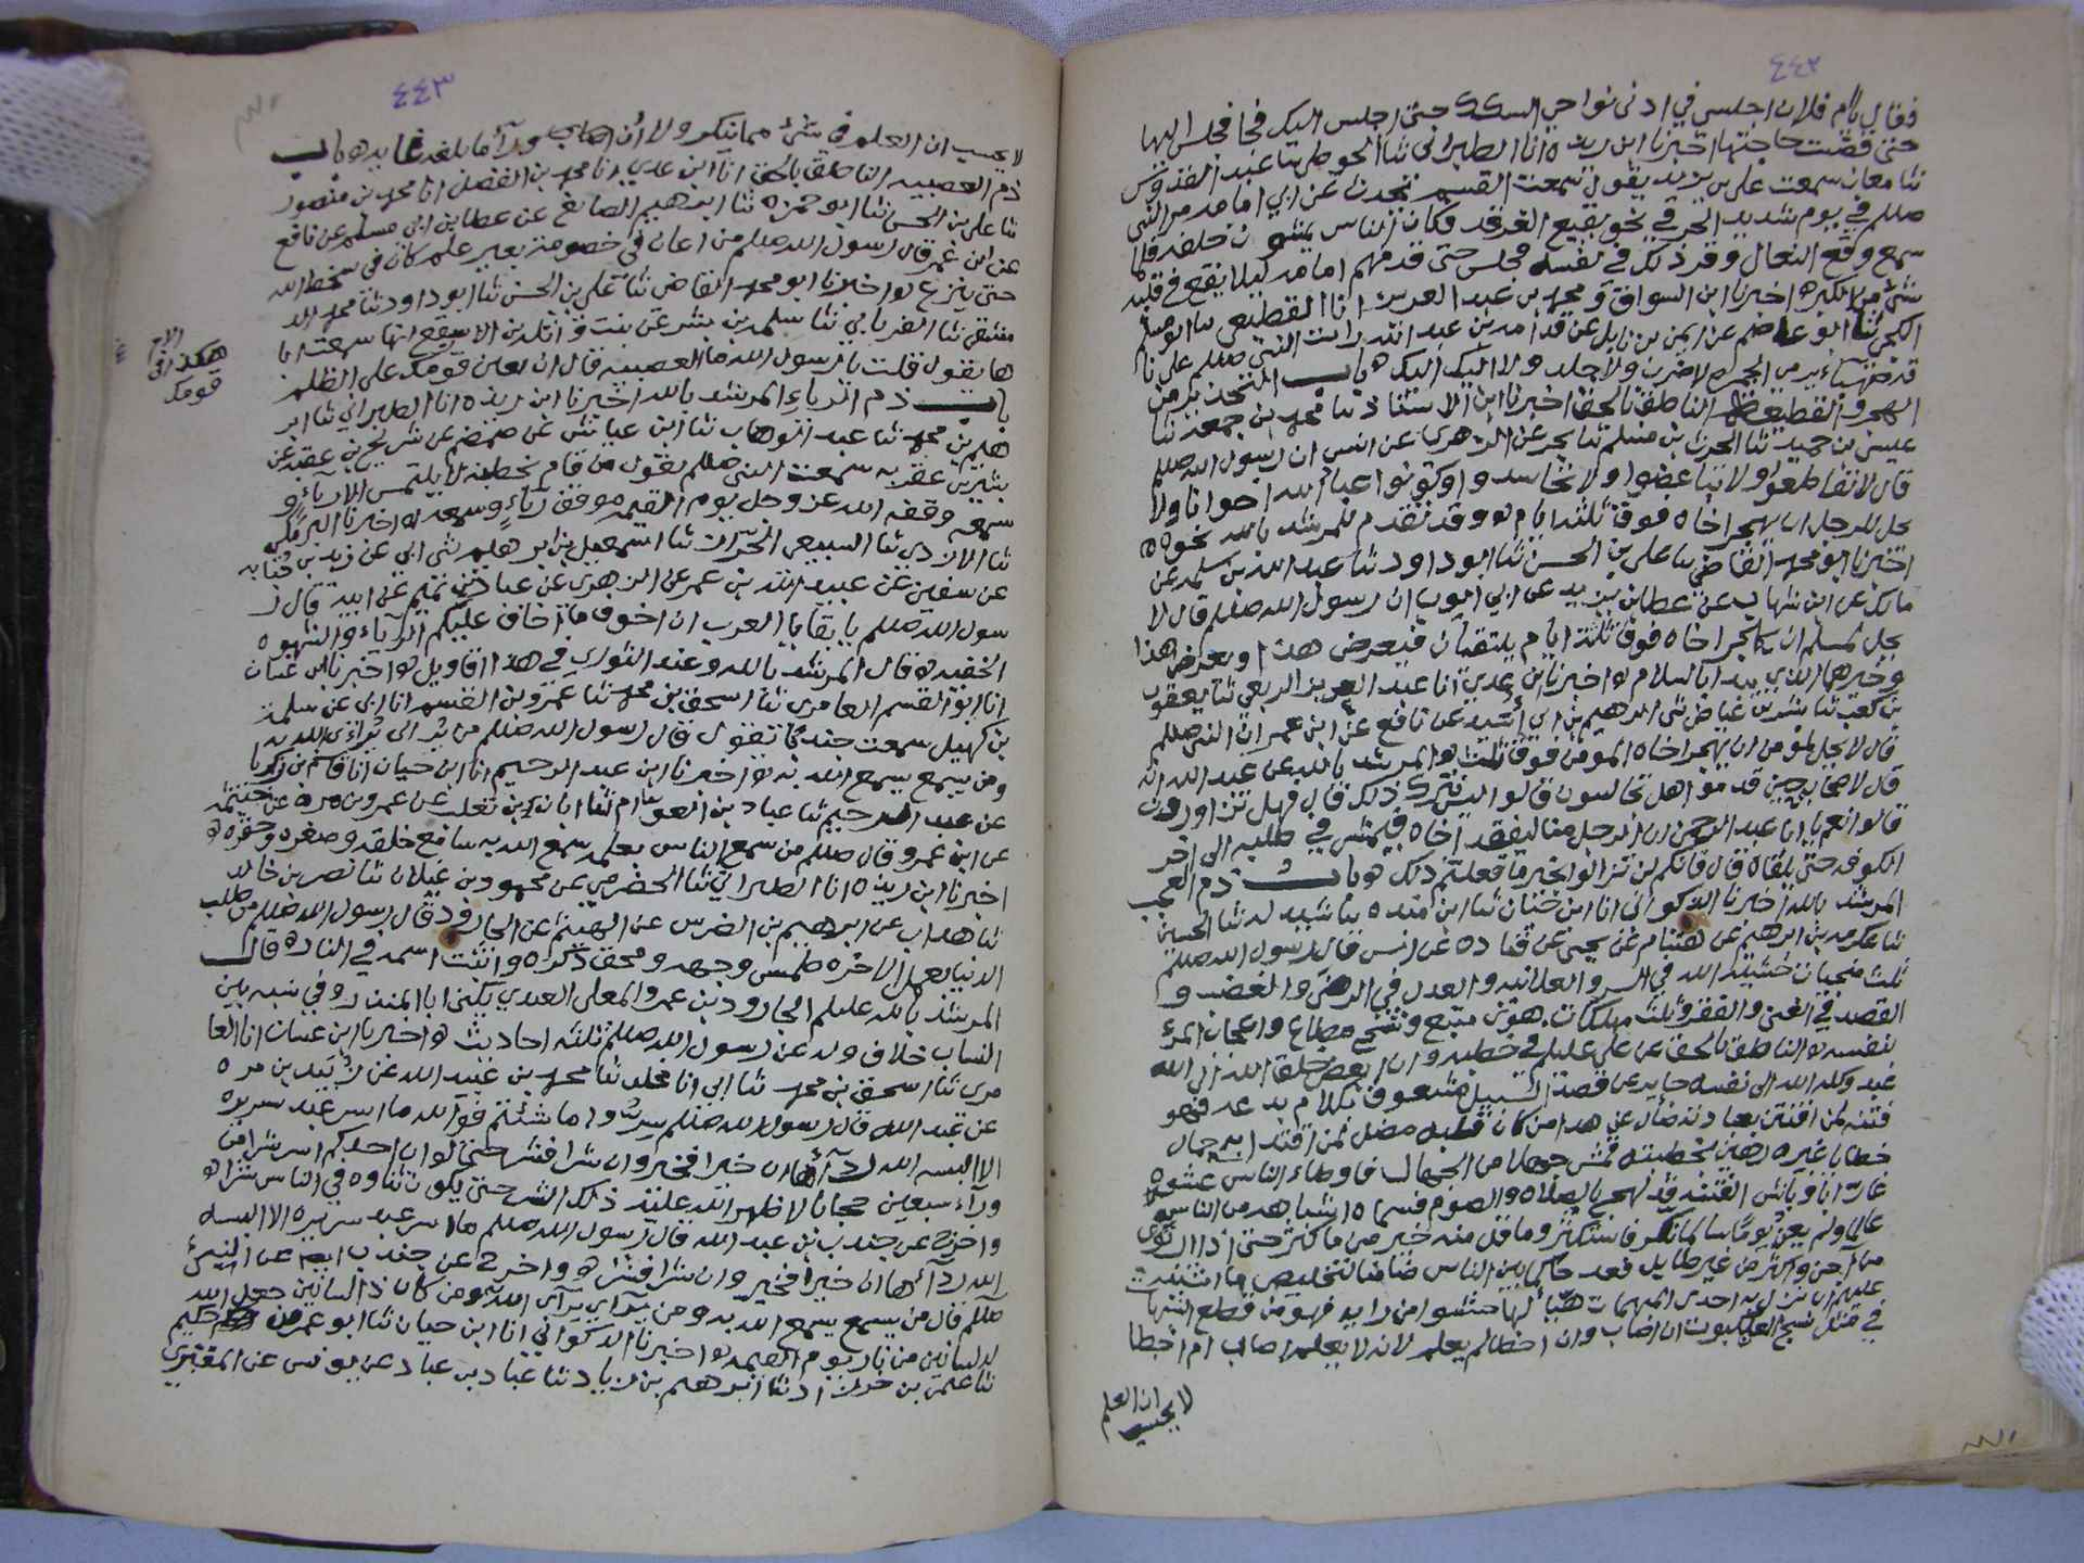 ٤٤٢
فقال يا ام فلان اجلسي في ادنى نواحي السكك حتى اجلس اليك فجا فجلس اليها
حتى قضت حاجتها اخبرنا ابن ريذه انا الطبراني ثنا الحوطي ثنا عبد القدوس
ثنا معان سمعت علي بن يزيد يقول سمعت القسم يحدث عن ابي امامه مر النبي
صللم في يوم شديد الحر في نحو بقيع الغرقد فكان الناس يمشون خلفه فلما
سمع وقع النعال وقر ذلك في نفسه فجلس حتى قدمهم امامه ليلا يقع في قلبه
شئ من الكبر ه اخبرنا ابن السواق و محمد بن عبد العزيز انا القطيعي ثنا ابو مسلم
الكجي ثنا ابو عاصم عن ايمن بن نابل عن قدامه بن عبد الله رايت النبي صللم على نا
قه صهباء يرمي الجمره لا ضرب ولا جلد ولا اليك اليك ه باب التحذير من
الهجر والقطيعه الناطق بالحق اخبرنا ابن الاستاذ ثنا محمد بن جمعه ثنا
عيسى بن حميد ثنا الحرث بن مسلم ثنا بحر عن الزهري عن انس ان رسول الله صللم
قال لا تقاطعوا ولا تباغضوا ولا تحاسدوا وكونوا عباد الله اخوانا ولا
يحل للرجل ان يهجر اخاه فوق ثلثة ايام ه وقد تقدم للمرشد بالله نحوه ه
اخبرنا ابو محمد القاضي ثنا علي بن الحسن ثنا ابو داود ثنا عبد الله بن سلمه عن
مالك عن ابن شهاب عن عطا بن يزيد عن ابي ايوب ان رسول الله صللم قال لا
يحل لمسلم ان يهجر اخاه فوق ثلثة ايام يلتقيان فيعرض هذا ويعرض هذا
وخيرهما الذي يبدا بالسلام ه اخبرنا ابن عدي انا عبد العزيز الربعي ثنا يعقوب
بن كعب ثنا بشر بن عياض ثني ابرهيم بن ابي اسيد عن نافع عن ابن عمر ان النبي صللم
قال لا يحل لمؤمن ان يهجر اخاه المومن فوق ثلث ه المرشد بالله عن عبد الله انه
قال لاصحابه حين قدموا هل تجالسون قالوا ليس نترك ذلك قال فهل تزاورون
قالوا نعم يا ابا عبد الرحمن ان الرجل منا ليفقد اخاه فيمشي في طلبه الى اخر
الكوفه حتى يلقاه قال فانكم لن تزالوا بخير ما فعلتم ذلك ه باب ذم العجب
المرشد بالله اخبرنا الذكواني انا ابن حيان ثنا ابن منده ثنا شيبه له ثنا الحسين
ثنا عكرمه بن ابرهيم عن هشام عن يحيى عن قتاده عن انس قال رسول الله صللم
ثلث منجيات خشية الله في السر والعلانيه والعدل في الرضى والغضب و
القصد في الغنى والفقر وثلث مهلكات هوى متبع وشح مطاع واعجاب المرء
بنفسه ه الناطق بالحق عن علي عليلم في خطبه وان ابغض خلق الله الى الله
عبد وكله الله الى نفسه جاير عن قصد السبيل مشعوف بكلام بدعه فهو
فتنه لمن افتتن بعبادته ضال عن هدا من كان قبله مضل لمن اقتدا به حمال
خطايا غيره رهين بخطيئته قمش جهلا من الجهال فاوطاء الناس عشوه
غار بأوباش الفتنة قد لهج بالصلاه والصوم فسماه اشباهه من الناس
عالما ولم يعن يوما سالما بكر فاستكثر وما قل منه خير من ما كثر حتى اذا ارتوى
من آجن واكثر من غير طايل قعد حاكما بين الناس ضامنا لتخليص ما اشتبه
عليهم ان نزل به احدى المبهمات هيأ لها حشوا من رايه فهو من قطع الشبهات
في مثل نسج العنكبوت ان اصاب وان اخطا لم يعلم لانه لا يعلم اصاب ام اخطا
لا يحسب
ان العلم
٤٤٣
لا يحسب ان العلم في شئ مما ينكر ولا ان وراء ما بلغه غايه ه باب
ذم العصبيه الناطق بالحق انا ابن عدي انا محمد بن الفضل انا محمد بن منصور
ثنا علي بن الحسن ثنا ابو حمزه ثنا ابرهيم الصايغ عن عطا بن ابي مسلم عن نافع
عن ابن عمر قال رسول الله صللم من اعان في خصومة بغير علم كان في سخط الله
حتى ينزع ه اخبرنا ابو محمد القاضي ثنا علي بن الحسن ثنا ابو داود ثنا محمد الد
مشقي ثنا الفريابي ثنا سلمه بن بشر عن بنت واثله بن الاسقع انها سمعت ابا
ها يقول قلت يا رسول الله ما العصبيه قال ان تعين قومك على الظلم
باب ذم الرياء المرشد بالله اخبرنا ابن ريذه انا الطبراني ثنا ابر
هيم بن محمد ثنا عبد الوهاب ثنا ابن عياش عن ضمضم عن شريح بن عقبه عن
بشير بن عقربه سمعت النبي صللم يقول من قام بخطبة لا يلتمس الا رياء و
سمعه وقفه الله عز وجل يوم القيمه موقف رياء وسمعه ه اخبرنا البرمكي
ثنا الازدي ثنا السبيعي الخراز ثنا اسمعيل بن ابرهيم ثني ابي عن زيد بن حباب
عن سفين عن عبيد الله بن عمر عن الزهري عن عباد بن تميم عن ابيه قال ر
سول الله صللم يا بقايا العرب ان اخوف ما اخاف عليكم الرياء والشهوه
الخفيه ه قال المرشد بالله وعند الثوري في هذا اقاويل ه اخبرنا ابن غسان
انا ابو القسم العامري ثنا اسحق بن محمد ثنا عمرو بن القسم انا ابي عن سلمة
بن كهيل سمعت جندبا تقول قال رسول الله صللم من يرائى يرائي الله به
ومن يسمع يسمع الله به ه اخبرنا ابن عبد الرحيم انا ابن حيان انا قاسم بن زكريا
عن عبد الرحيم ثنا عباد بن العوام ثنا ابان بن تغلب عن عمرو بن مره عن خيثمه
عن ابن عمرو قال صللم من سمع الناس بعلمه سمع الله به سامع خلقه وصغره وحقره ه
اخبرنا ابن ريذه انا الطبراني ثنا الحضرمي عن محمود بن غيلان ثنا نصر بن خالد
ثنا هداب عن ابرهيم بن الضرس عن الهيثم عن الجارود قال رسول الله صللم من طلب
الدنيا بعمل الاخره طمس وجهه ومحق ذكره واثبت اسمه في النار ه قال
المرشد بالله عليلم الجارود بن عمرو المعلى العبدي يكنى ابا المنذر وفي نسبه بين
النساب خلاف وله عن رسول الله صللم ثلثه احاديث ه واخبرنا ابن غسان انا العا
مري ثنا اسحق بن محمد ثنا ابي انا مخلد ثنا محمد بن عبيد الله عن زبيد بن مره
عن عبد الله قال رسول الله صللم سروا ما شئتم فوالله ما اسر عبد سريره
الا البسه الله رداءها ان خيرا فخير وان شرا فشر حتى لو ان احدكم اسر شرا من
وراء سبعين حجابا لاظهر الله عليه ذلك الشر حتى يكون ثناوه في الناس شرا ه
واخرج عن جندب بن عبد الله قال رسول الله صللم ما اسر عبد سريره الا البسه
الله رداءها ان خيرا فخير وان شرا فشر ه واخرج عن جندب ايضا عن النبئ
صللم قال من يسمع يسمع الله به ومن يرآي يرآي الله به ومن كان ذا لسانين جعل الله
له لسانين من نار يوم القيمه ه اخبرنا الذكواني انا ابن حيان ثنا ابو عمر بن حكيم
ثنا علي بن حرب ثنا ابرهيم بن زياد ثنا عباد بن عباد عن يونس عن المقبري
هكذا في
قومك